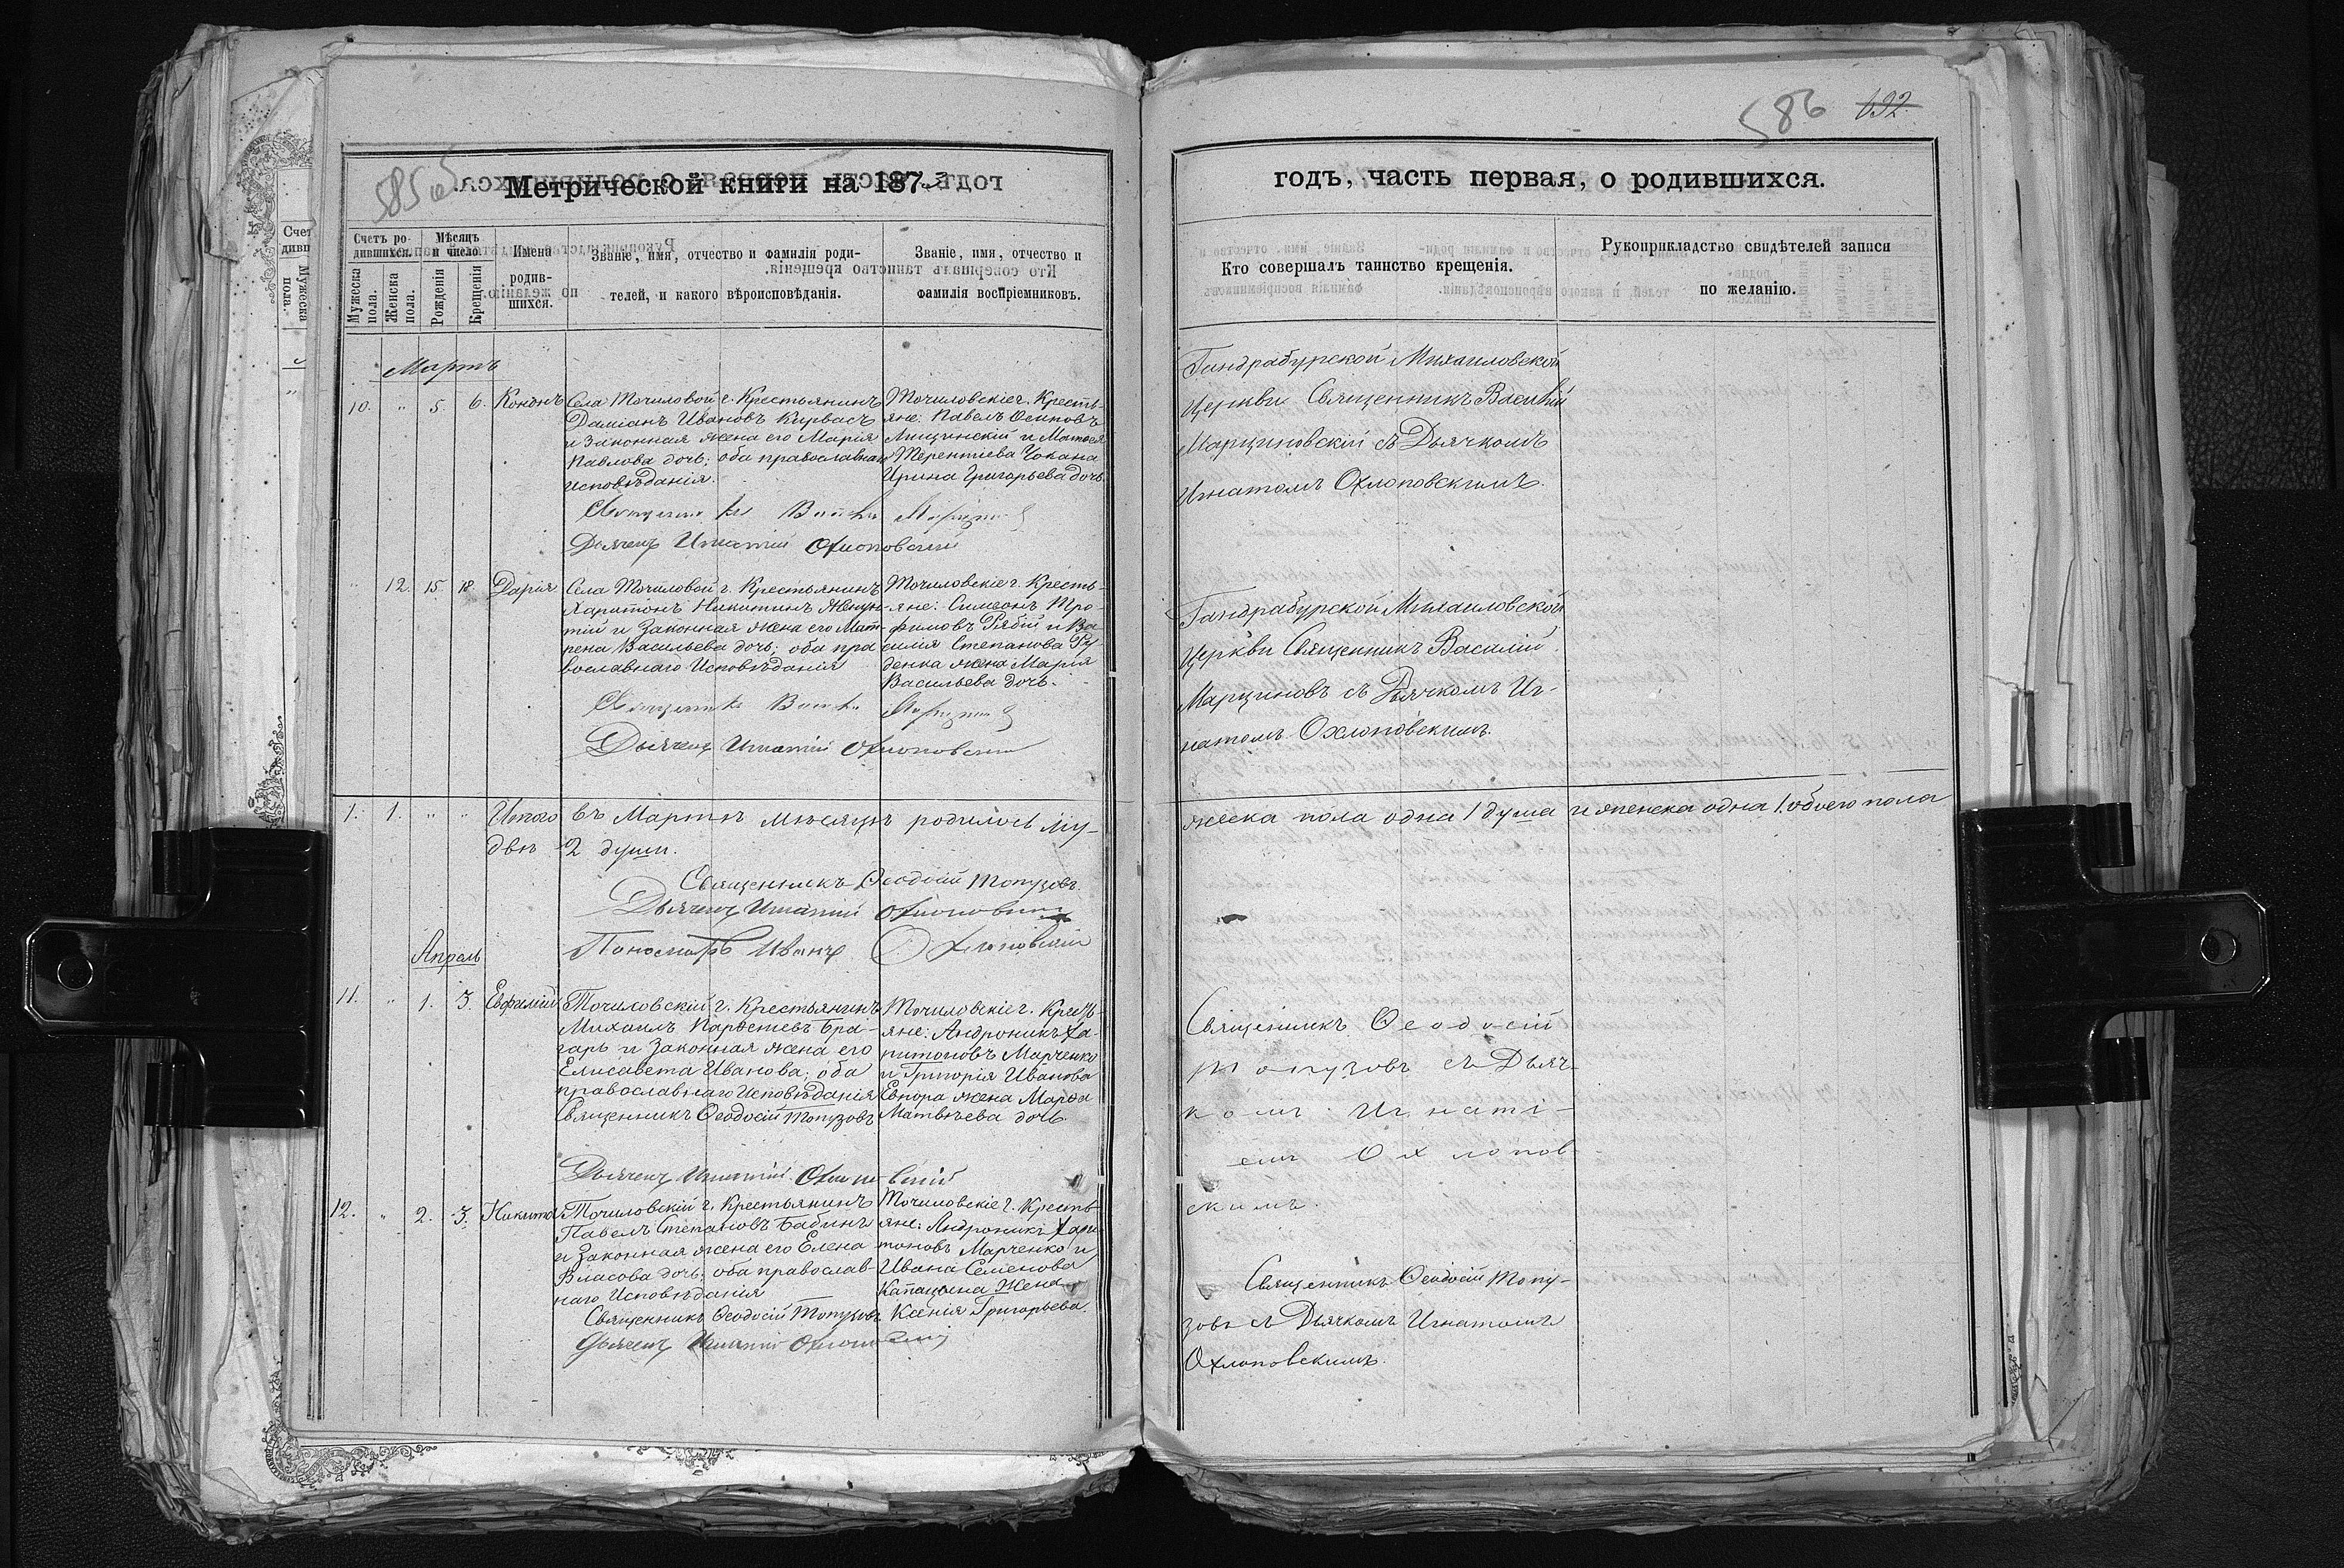 586 132
585 об
Метрической книги на 1875
годъ, часть первая, о родившихся.
Счетъ ро-
дившихся.
Мѣсяцъ
и число.
Мужеска пола.
Женска пола.
Рожденія
Крещенія
Имена
родив-
шихся.
Званіе, имя, отчество и фамилія роди-
телей, и какого вѣроисповѣданія.
Званіе, имя, отчество и
фамилія воспріемниковъ.
Кто совершалъ таинство крещенія.
Рукоприкладство свидѣтелей записи
по желанію.
Мартъ
10. " 5. 6. Кононъ
Села Точиловой г. Крестьянинъ
Даміанъ Ивановъ Кирвасъ
и Законная жена его Марія
Павлова дочь; оба православнаго
исповѣданія.
Точиловскіе г. Кресть-
яне: Павелъ Осиповъ
Лищинскій и Матвея
Терентіева Чокана
Ирина Григорьева дочь.
Дьячекъ Игнатій Охлоповскій
Гандрабурской Михаиловской
Церкви Священникъ Василій
Марциновскій съ Дьячкомъ
Игнатомъ Охлоповскимъ.
" 12. 15. 18. Дарія
Села Точиловой г. Крестьянинъ
Харитонъ Никитинъ
и Законная жена его Мат-
рена Васильева дочь; оба пра
вославнаго Исповѣданія
Точиловскіе г. Кресть-
яне: Симеонъ Тро-
фимовъ Рябій и Ва
силія Степанова Ру-
денка жена Марія
Васильева дочь.
Дьячекъ Игнатій Охлоповскій
Гандрабурской Михаиловской
Церкви Священникъ Василій
Марциновъ съ Дьячкомъ Иг-
натомъ Охлоповскимъ.
1. 1. " " Итого въ Мартѣ мѣсяцѣ родилось му-
жеска пола одна 1 душа и женска одна 1. обоего пола
двѣ 2 души.
Священникъ Ѳеодосій Топузовъ.
Дьячекъ Игнатій Охлоповскій
Пономарь Иванъ Охлоповскій
Апрель
11. " 1. 3. Евфимій
Точиловскій г. Крестьянинъ
Михаилъ Парѳеніевъ Бра-
гарь и Законная жена его
Елисавета Иванова; оба
православнаго Исповѣданія
Священникъ Ѳеодосій Топузовъ
Точиловскіе г. Кресть-
яне: Андроникъ Ха-
ритоновъ Марченко
и Григорія Иванова
жена Марѳа
Матвѣева дочь.
Дьячекъ Игнатій Охлоповскій
Священникъ Ѳеодосій
Топузовъ съ Дьяч-
комъ Игнаті-
емъ Охлопов-
скимъ.
12. " 2. 3. Никита
Точиловскій г. Крестьянинъ
Павелъ Степановъ Бабинъ
и Законная жена его Елена
Власова дочь; оба православ-
наго Исповѣданія
Священникъ Ѳеодосій Топузовъ
Точиловскіе г. Кресть
яне: Андроникъ Хари
тоновъ Марченко и
Ивана Семенова
Капацина Жена
Ксенія Григорьева.
Дьячекъ Игнатій Охлоповскій
Священникъ Ѳеодосій Топу-
зовъ съ Дьячкомъ Игнатомъ
Охлоповскимъ.